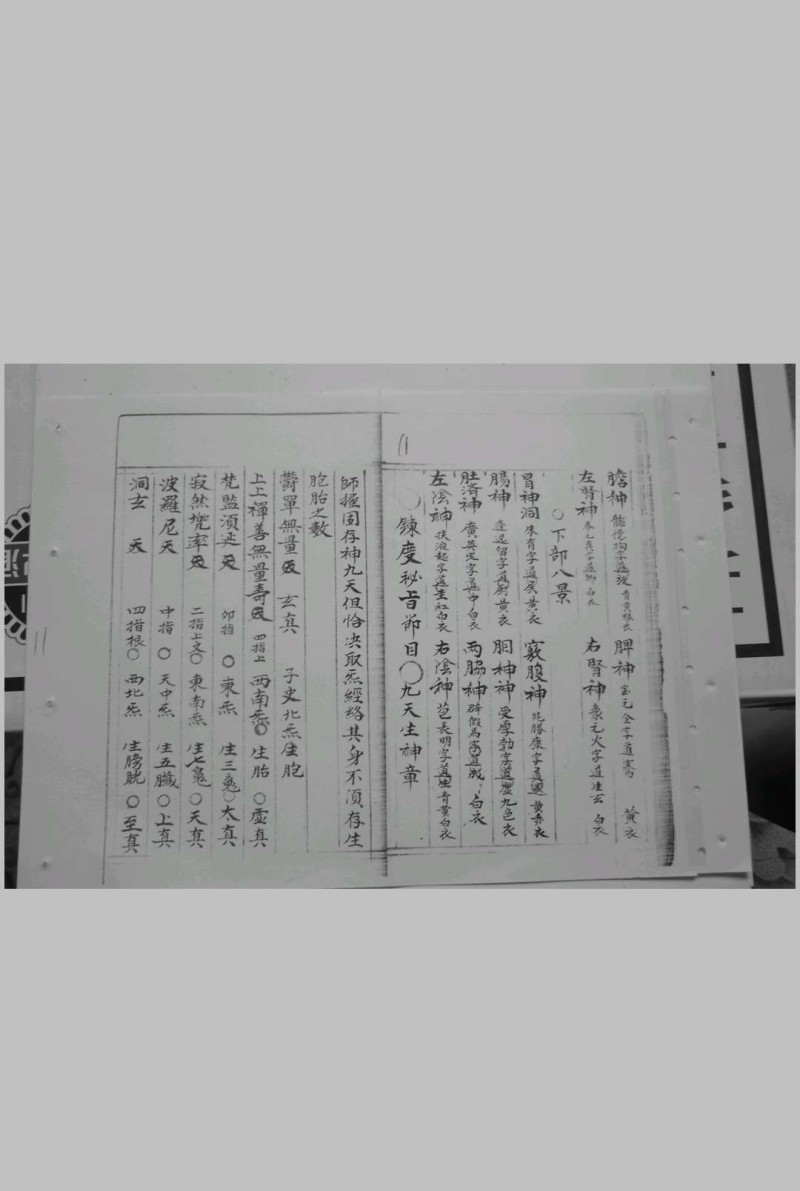 膽神 龍德拘字道放 青黃綠衣 脾神 寶元全字道騫 黃衣
左腎神 春元真字道卿 白衣 右腎神 象元火字道生玄 白衣
○下部八景
胃神 洞朱育字道展 黃衣 窮腹神 兆勝康字道還 黃赤衣
腸神 蓬送留字道廚 黃衣 胴神神 受厚勃字道虔 九色衣
肚濟神 廣英定字道中 白衣 兩脇神 辟假馬字道成 白衣
左陰神 扶流起字道生 紅白衣 右陰神 苞表明字道生 青黃白衣
○鍊度秘旨節目○九天生神章
11
師握固存神九天但恰决取炁經絡其身不須存生
胞胎之數
欝單無量天 玄真 子史北炁生胞
上上禪善無量壽天 四指上 西南炁○生胎○虛真
梵監須延天 卯指○東炁 生三魂○太真
寂然兜率天 二指上文○東南炁 生七魄○天真
波羅尼天 中指○天中炁 生五臟○上真
洞玄天 四指根○西北炁 生膀胱○至真
11